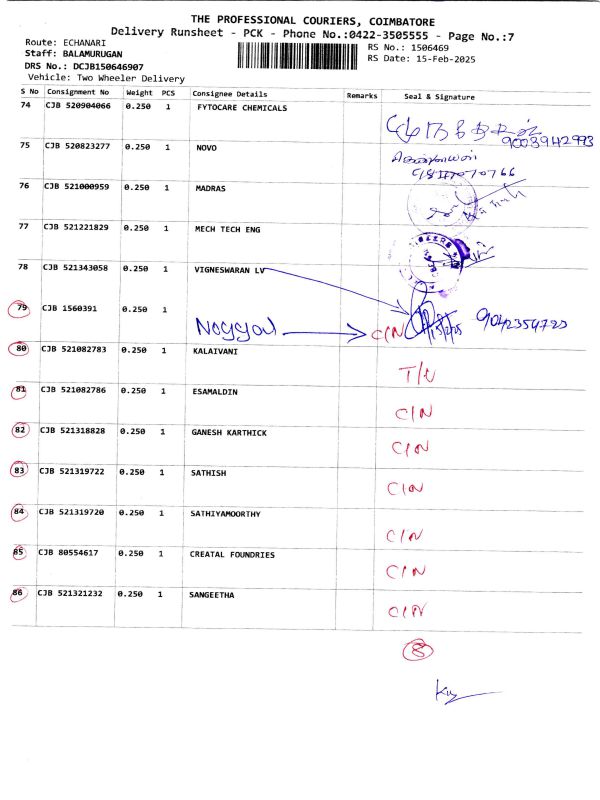 THE PROFESSIONAL COURIERS, COIMBATORE
Delivery Runsheet - PCK - Phone No.:0422-3505555 - Page No.:7
Route: ECHANARI
RS No.: 1506469
Staff: BALAMURUGAN
RS Date: 15-Feb-2025
DRS No.: DCJB150646907
Vehicle: Two Wheeler Delivery
S No Consignment No Weight PCS Consignee Details Remarks Seal & Signature
74 CJB 520904066 0.250 1 FYTOCARE CHEMICALS
9003942993
75 CJB 520823277 0.250 1 NOVO
76 CJB 521000959 0.250 1 MADRAS
77 CJB 521221829 0.250 1 MECH TECH ENG
78 CJB 521343058 0.250 1 VIGNESWARAN LV
79 CJB 1560391 0.250 1
C/N 9042354723
80 CJB 521082783 0.250 1 KALAIVANI
81 CJB 521082786 0.250 1 ESAMALDIN C/N
82 CJB 521318828 0.250 1 GANESH KARTHICK C/N
83 CJB 521319722 0.250 1 SATHISH C/N
84 CJB 521319720 0.250 1 SATHIYAMOORTHY C/N
85 CJB 80554617 0.250 1 CREATAL FOUNDRIES C/N
86 CJB 521321232 0.250 1 SANGEETHA C/N
8